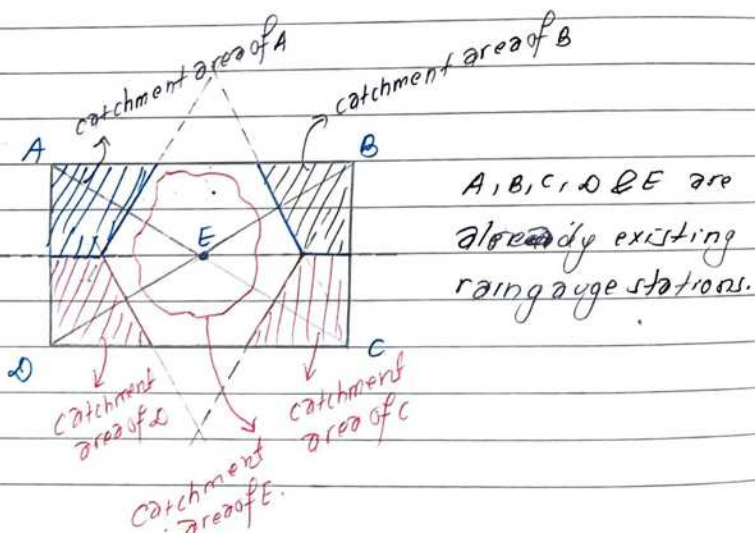 catchment area of A
catchment area of B
A
B
E
D
C
A, B, C, D & E are
already existing
raingauge stations.
catchment
area of D
catchment
area of C
catchment
area of E.